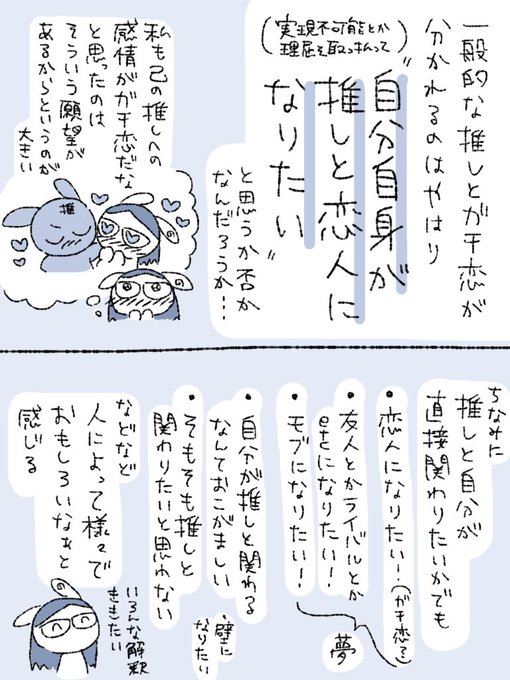 一般的な推しとガチ恋が
分かれるのはやはり
(実現不可能とか
理屈を取っ払って)
"自分自身が
推しと恋人に
なりたい"
と思うか否か
なんだろうか…
私も己の推しへの
感情がガチ恋だな
と思ったのは
そういう願望が
あるからというのが
大きい
推
ちなみに
推しと自分が
直接関わりたいかでも
・恋人になりたい!(ガチ恋る)
・友人とかライバルとか
etcになりたい!
・モブになりたい!
夢
・自分が推しと関わる
なんておこがましい
・そもそも推しと
関わりたいと思わない
壁に
なりたい
などなど
人によって様々で
おもしろいなぁと
感じる
いろんな解釈
ききたい